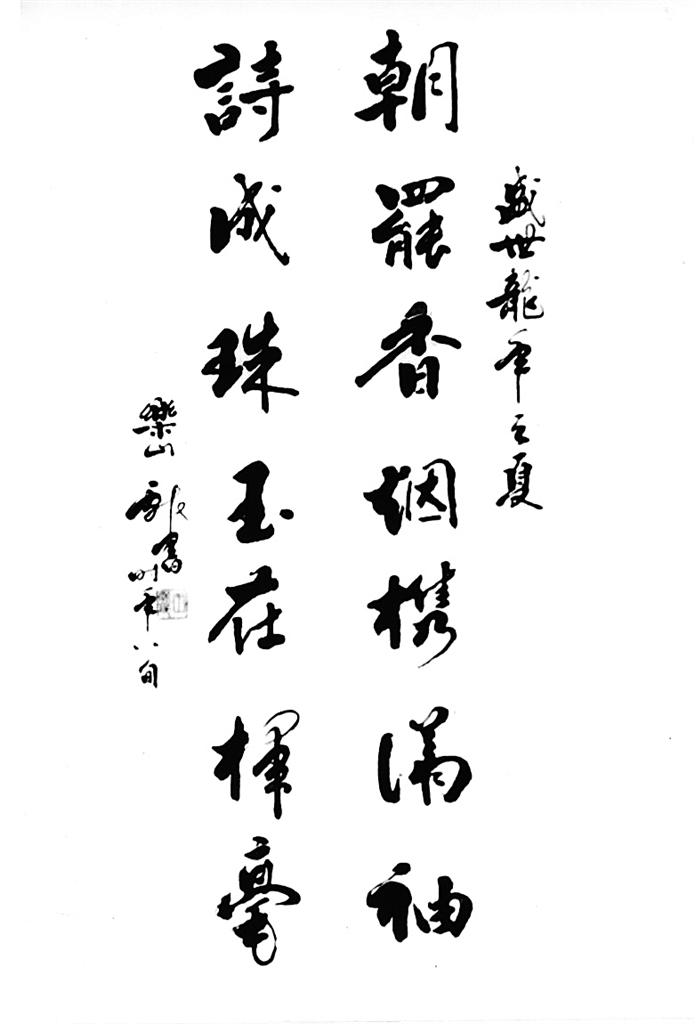 盛世龍年之夏
朝罷香烟携滿袖
詩成珠玉在揮毫
樂山 書時年八旬